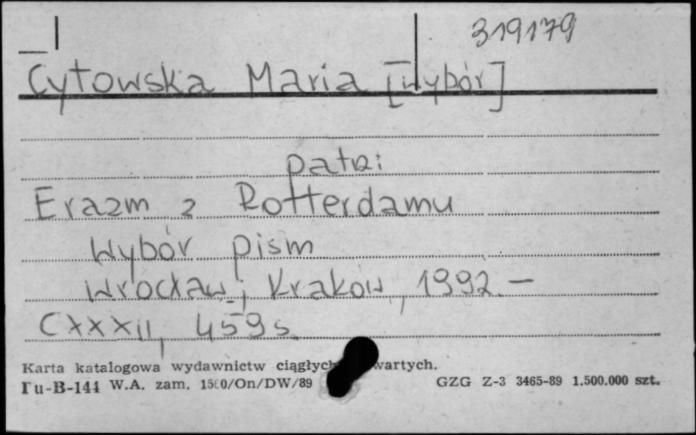 319179
Cytowska Maria [Wybór]
patrz:
Erazm z Rotterdamu
Wybór pism
Wrocław; Kraków, 1992. –
CXXXII, 459 s.
Karta katalogowa wydawnictw ciągłych wartych.
Pu-B-144 W.A. zam. 1500/On/DW/89 GZG Z-3 3465-89 1.500.000 szt.